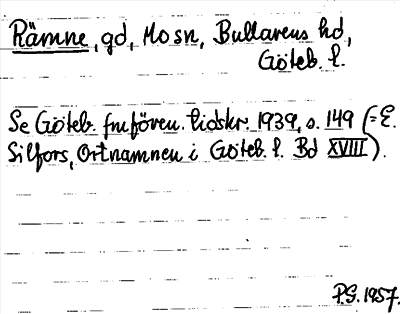 Rämne, gd, Mo sn, Bullarens hd,
Göteb. l.
Se Göteb. fmfören. tidskr. 1939, s. 149 (=E.
Silfors, Ortnamnen i Göteb. l. Bd XVIII).
P.G. 1957.